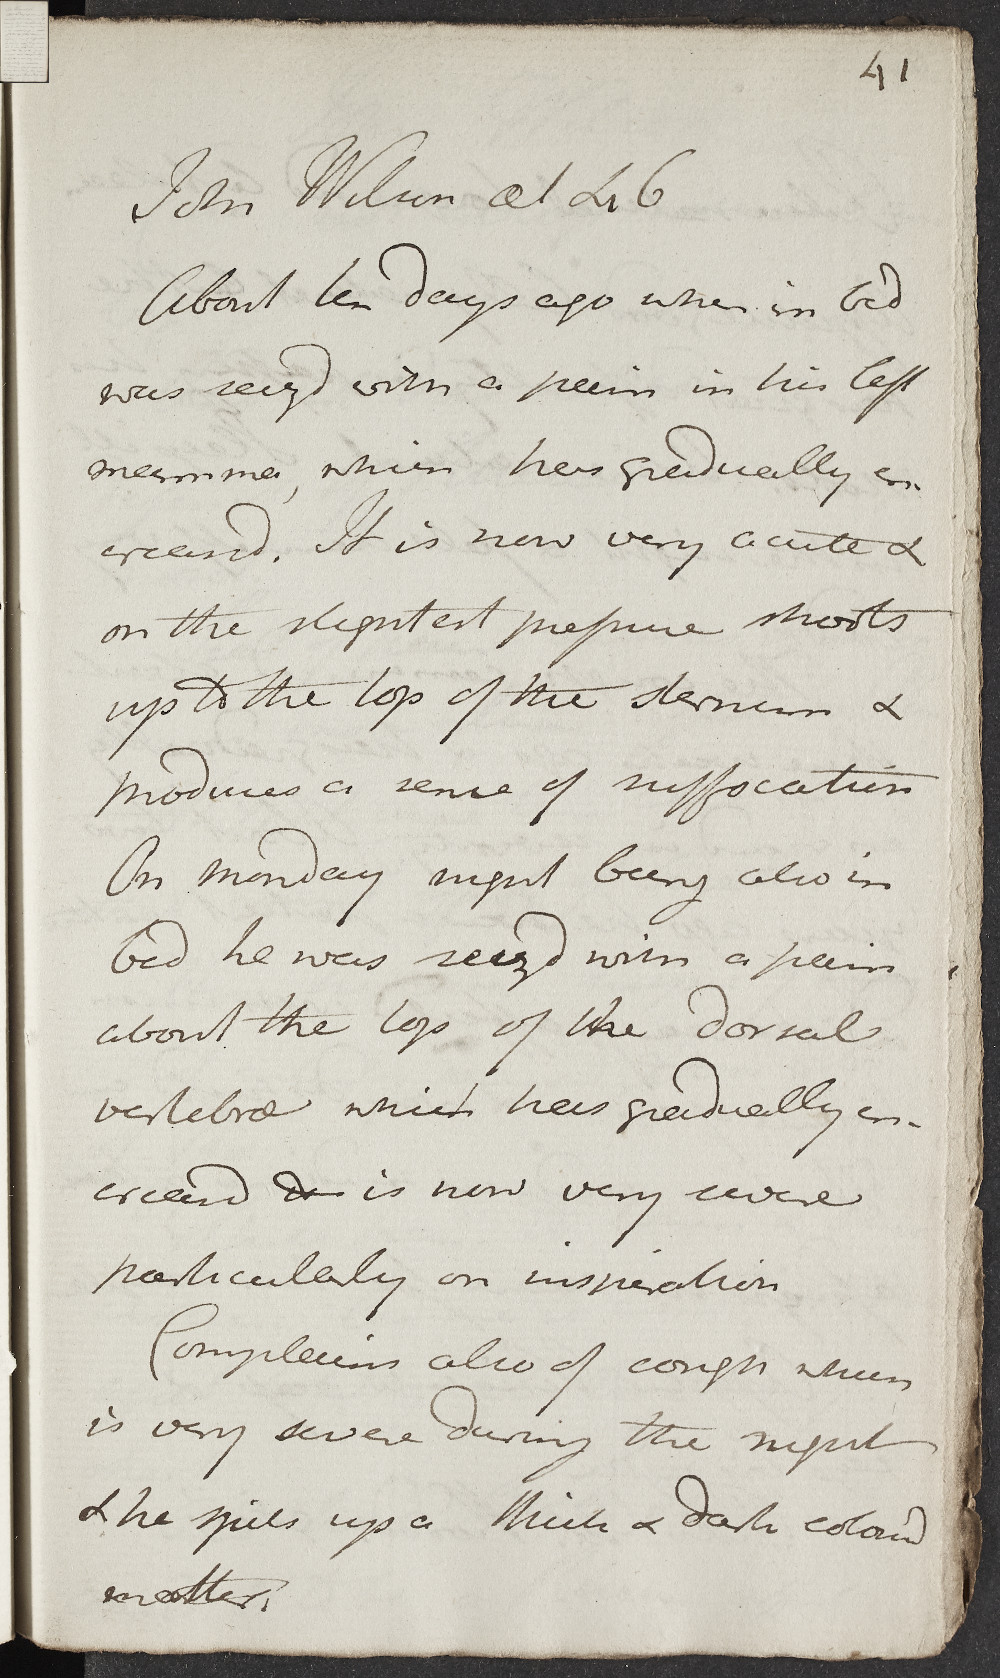 41
John Wilson æt 46
About ten days ago when in bed
was seizd with a pain in his left
mamma, which has gradually en-
creasd. It is now very acute &
on the slightest pressure shoots
up to the top of the sternum &
produces a sense of suffocation
On Monday night being also in
bed he was seizd with a pain
about the top of the dorsal
vertebræ which has gradually en-
creasd & is now very severe
particularly on inspiration
Complains also of cough which
is very severe during the night
& he spits up a thick & dark colourd
matter.